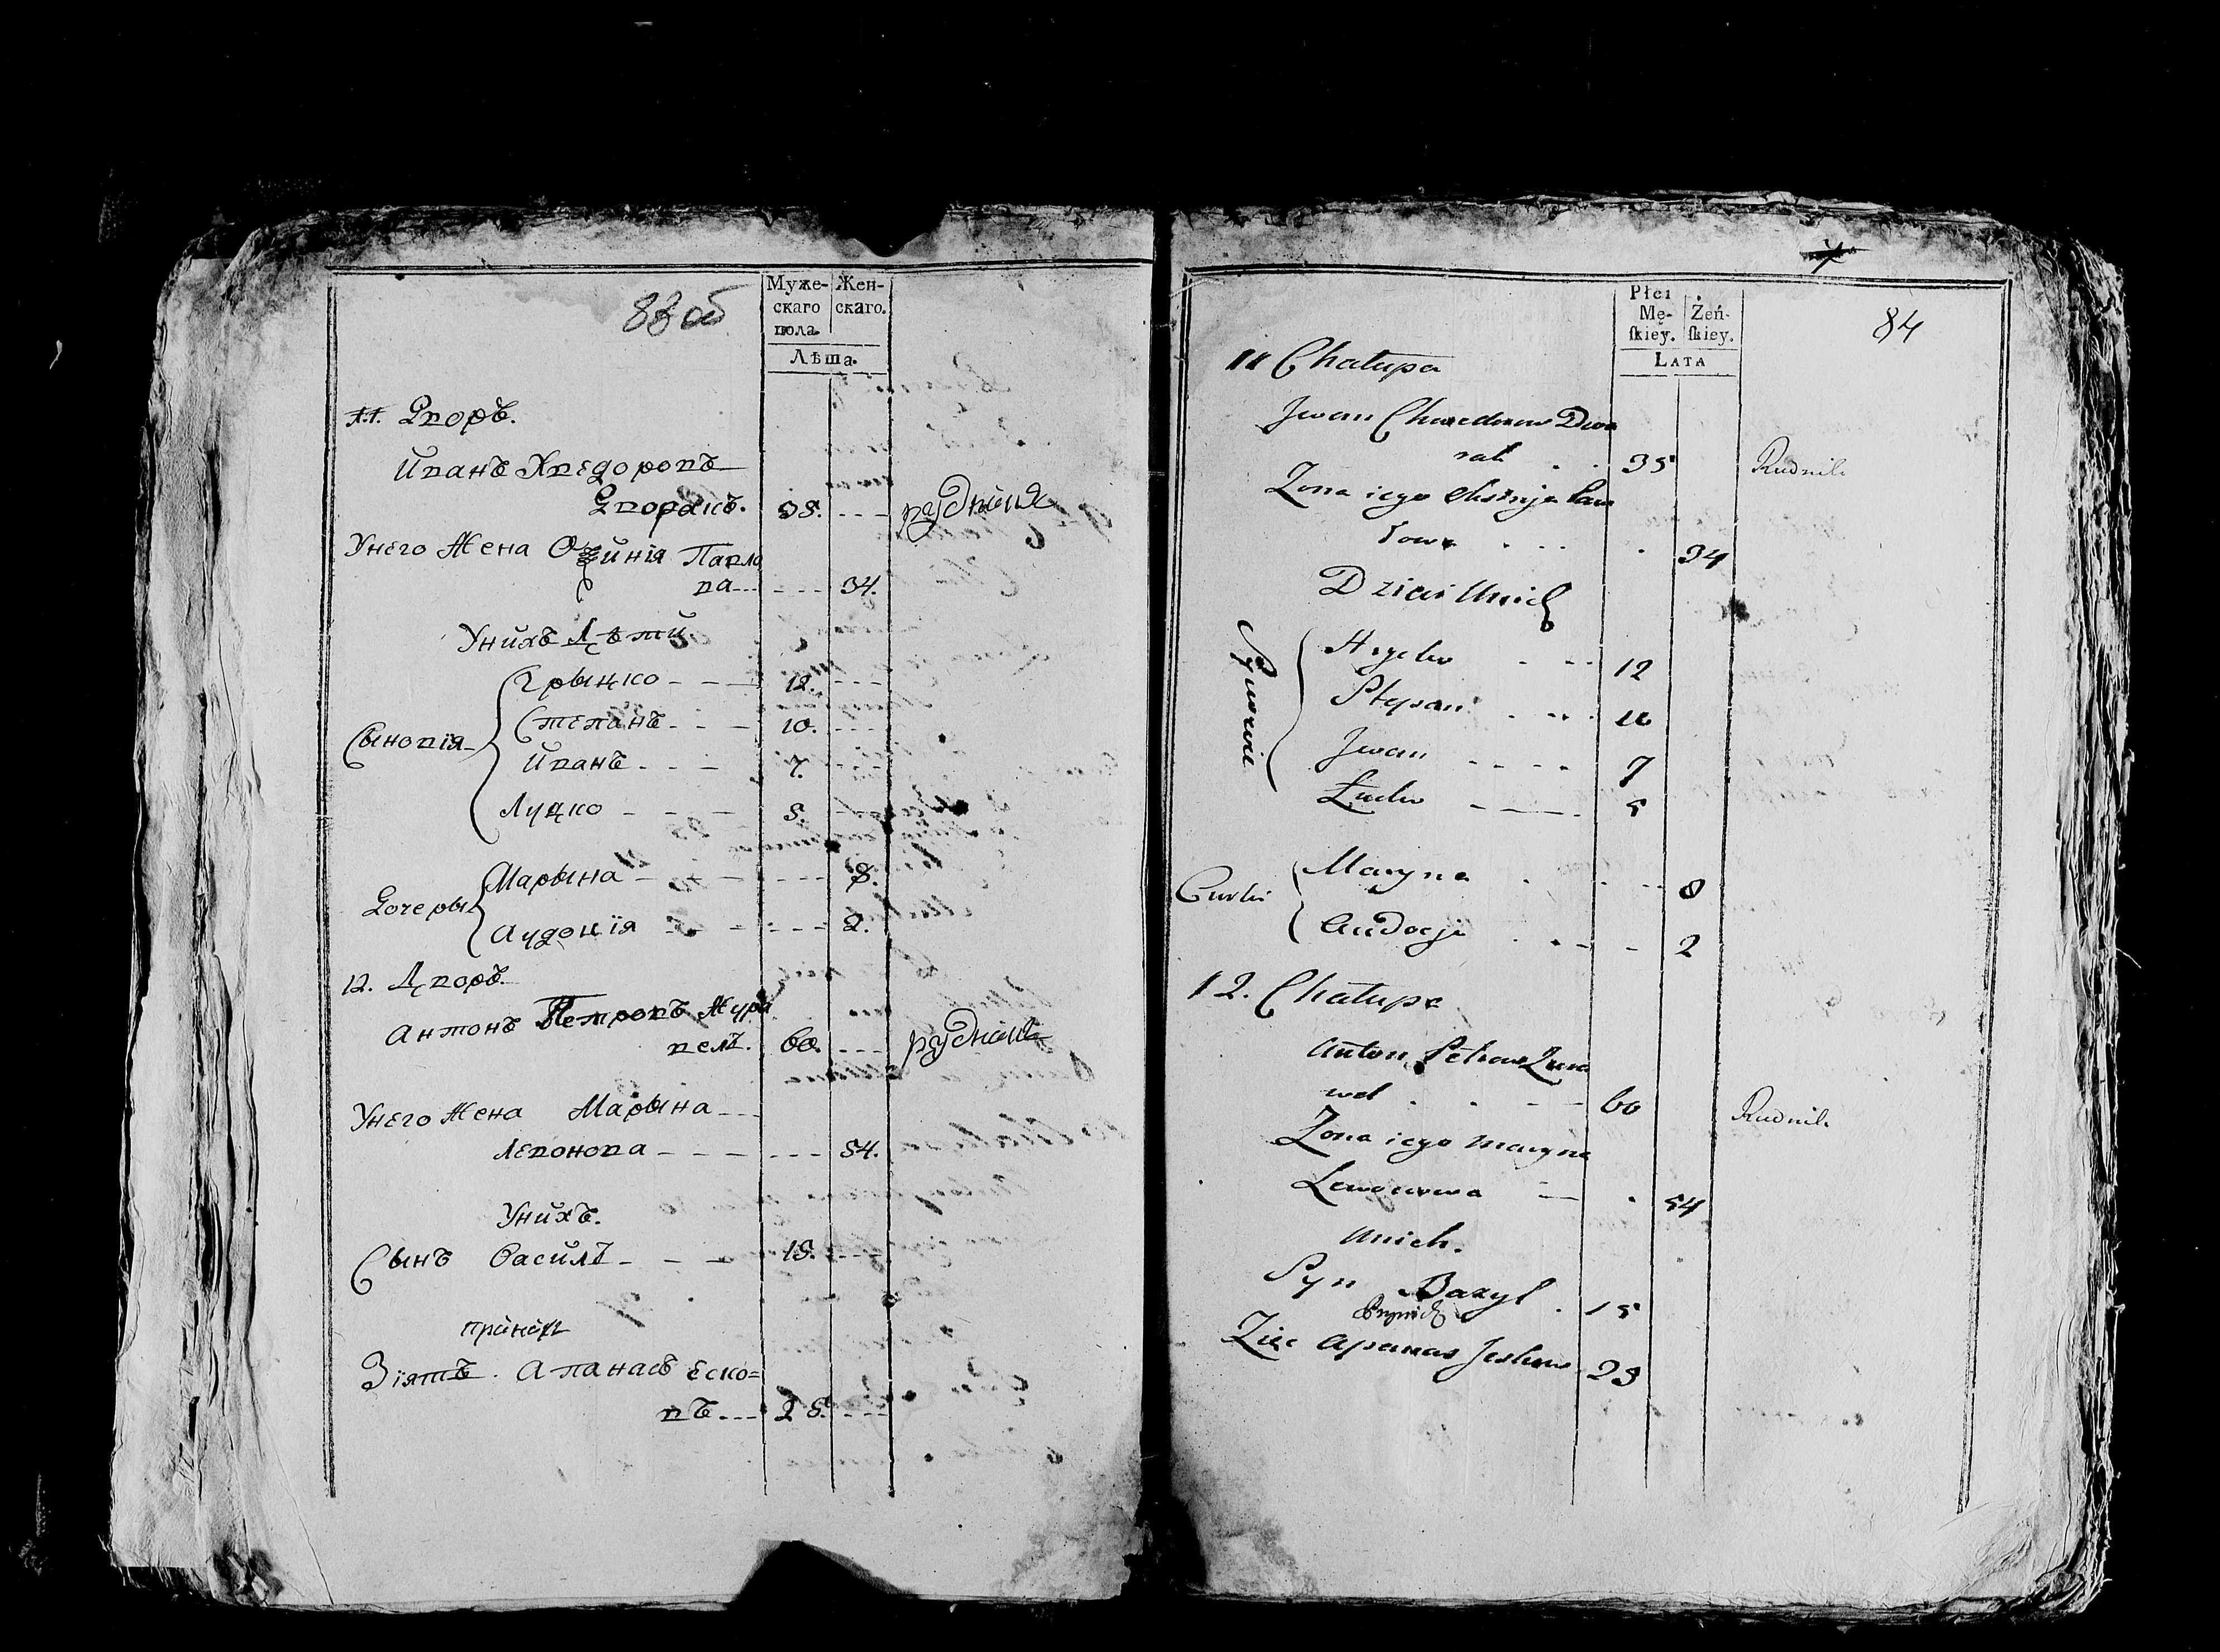 83 об
Муже-
скаго
пола.
Жен-
скаго.
Лѣта.
11. Дворъ.
Иванъ Хведоровъ
Дворакъ. 35.
У него Жена Павло
ва 34.
У нихъ Дѣти
Сыновія
Грыцко 12.
Степанъ 10.
Иванъ 7.
Луцко 5.
Дочеры
Марына 8.
Аудоція 2.
12. Дворъ.
Антонъ Петровъ Жура
вель. 60.
У него Жена Марына
Левонова 54.
У нихъ.
Сынъ Василь 15.
Зіять. Апанасъ Еско=
въ 23.
84
Płci
Mę-
ſkiey.
Żeń-
ſkiey.
LATA
11 Chałupa
Jwan Chwedorow Dwo
rak 35 Rudnik
Zona iego Paw
łowa 34
Dzieci U nich
Synowie
Hryćko 12
Stepan 10
Jwan 7
Łucko 5
Curki
Maryna 8
Audocja 2
12. Chałupa
Anton Petrow Zura
wel 60 Rudnik
Zona iego Maryna
Lewonowa 54
U nich.
Syn Bazyl 15
Zięc Apanas Jeskow 23